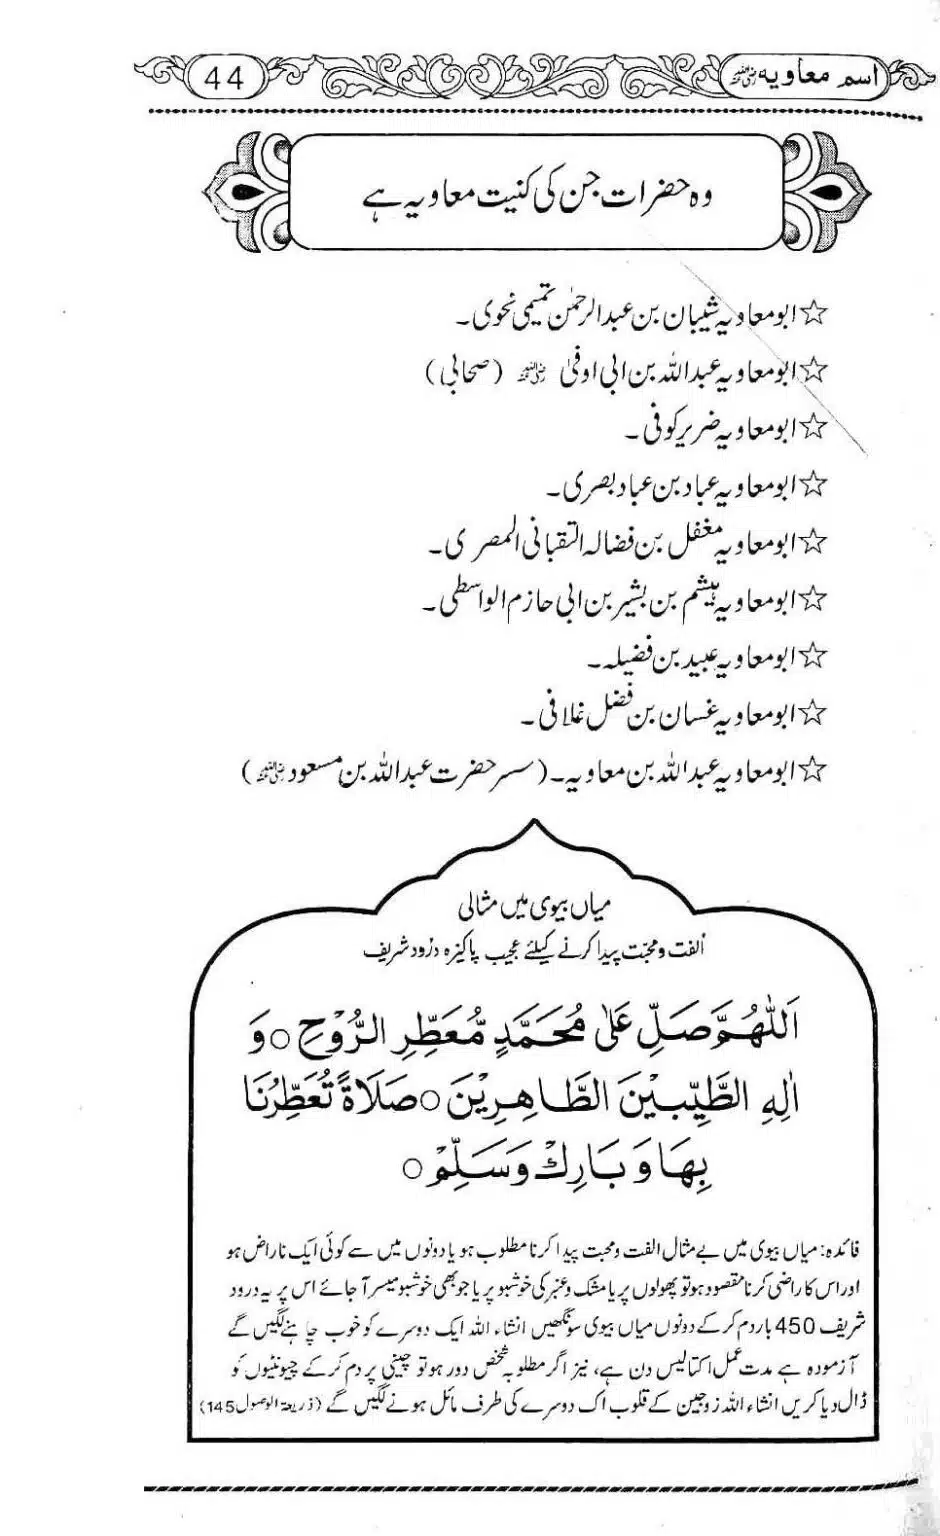 اسم معاویہ رضی اللہ عنہ
44
وہ حضرات جن کی کنیت معاویہ ہے
☆ابو معاویہ شیبان بن عبدالرحمٰن تمیمی نحوی۔
☆ابو معاویہ عبداللہ بن ابی اوفیٰ رضی اللہ عنہ (صحابی)
☆ابو معاویہ ضریر کوفی۔
☆ابو معاویہ عباد بن عباد بصری۔
☆ابو معاویہ مغفل بن فضالہ التقبانی المصری۔
☆ابو معاویہ ہیشم بن بشیر بن ابی حازم الواسطی۔
☆ابو معاویہ عبید بن فضیلہ۔
☆ابو معاویہ غسان بن فضل غلافی۔
☆ابو معاویہ عبداللہ بن معاویہ۔ (سسر حضرت عبداللہ بن مسعود رضی اللہ عنہ)
میاں بیوی میں مثالی
اُلفت و محبّت پیدا کرنے کیلئے عجیب پاکیزہ درُود شریف
اَللّٰهُمَّ صَلِّ عَلٰى مُحَمَّدٍ مُّعَطِّرِ الرُّوْحِ ○ وَ
اٰلِهِ الطَّيِّبِيْنَ الطَّاهِرِيْنَ ○ صَلَاةً تُعَطِّرُنَا
بِهَا وَ بَارِكْ وَسَلِّمْ ○
فائدہ: میاں بیوی میں بے مثال الفت ومحبت پیدا کرنا مطلوب ہو یا دونوں میں سے کوئی ایک ناراض ہو
اور اس کا راضی کرنا مقصود ہو تو پھولوں پر یا مشک و عنبر کی خوشبو پر یا جو بھی خوشبو میسر آ جائے اس پر یہ درود
شریف 450 بار دم کر کے دونوں میاں بیوی سونگھیں انشاء اللہ ایک دوسرے کو خوب چاہنے لگیں گے
آزمودہ ہے مدت عمل اکتالیس دن ہے، نیز اگر مطلوبہ شخص دور ہو تو چینی پر دم کر کے چیونٹیوں کو
ڈال دیا کریں انشاء اللہ زوجین کے قلوب اک دوسرے کی طرف مائل ہونے لگیں گے (ذریعۃ الوصول 145)